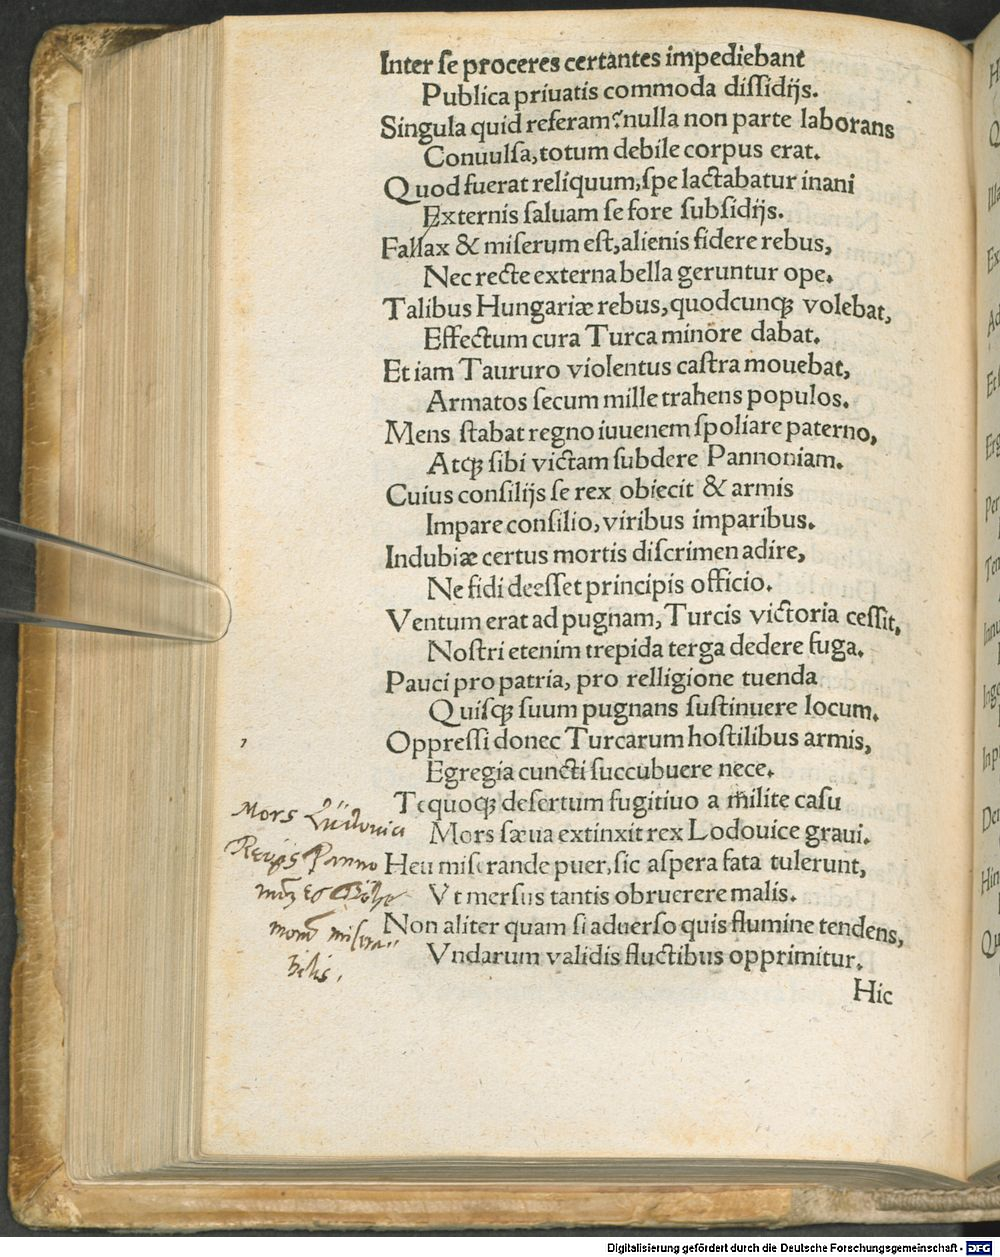 Inter ſe proceres certantes impediebant
Publica priuatis commoda diſſidijs.
Singula quid referam? nulla non parte laborans
Conuulſa, totum debile corpus erat.
Quod fuerat reliquum, ſpe lactabatur inani
Externis ſaluam ſe fore ſubſidijs.
Fallax & miſerum eſt, alienis fidere rebus,
Nec recte externa bella geruntur ope.
Talibus Hungariæ rebus, quodcunqꝫ volebat,
Effectum cura Turca minore dabat.
Et iam Taururo violentus caſtra mouebat,
Armatos ſecum mille trahens populos.
Mens ſtabat regno iuuenem ſpoliare paterno,
Atqꝫ ſibi victam ſubdere Pannoniam.
Cuius conſilijs ſe rex obiecit & armis
Impare conſilio, viribus imparibus.
Indubiæ certus mortis diſcrimen adire,
Ne fidi deeſſet principis officio.
Ventum erat ad pugnam, Turcis victoria ceſſit,
Noſtri etenim trepida terga dedere fuga.
Pauci pro patria, pro relligione tuenda
Quiſqꝫ ſuum pugnans ſuſtinuere locum.
Oppreſſi donec Turcarum hoſtilibus armis,
Egregia cuncti ſuccubuere nece.
Te quoqꝫ deſertum fugitiuo a milite caſu
Mors ſæua extinxit rex Lodouice graui.
Heu miſerande puer, ſic aſpera fata tulerunt,
Vt merſus tantis obruerere malis.
Non aliter quam ſi aduerſo quis flumine tendens,
Vndarum validis fluctibus opprimitur.
Hic
Mors Ludouici
Regis Panno
Bohe
miſera
bilis.
Digitalisierung gefördert durch die Deutsche Forschungsgemeinschaft - DFG